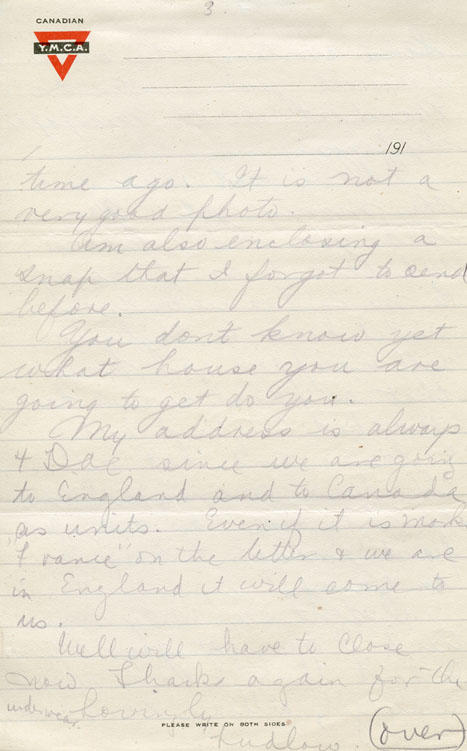 3.
CANADIAN
Y.M.C.A.
191
time ago. It is not a
very good photo.
Am also enclosing a
snap that I forgot to send
before.
You dont know yet
what house you are
going to get do you.
My address is always
4 DAC since we are going
to England and to Canada
as units. Even if it is mark
France" on the letter & we are
in England it will come to
us.
Well will have to close
now Thanks again for the
underwear Lovingly
PLEASE WRITE ON BOTH SIDES
Ludlow. (over)